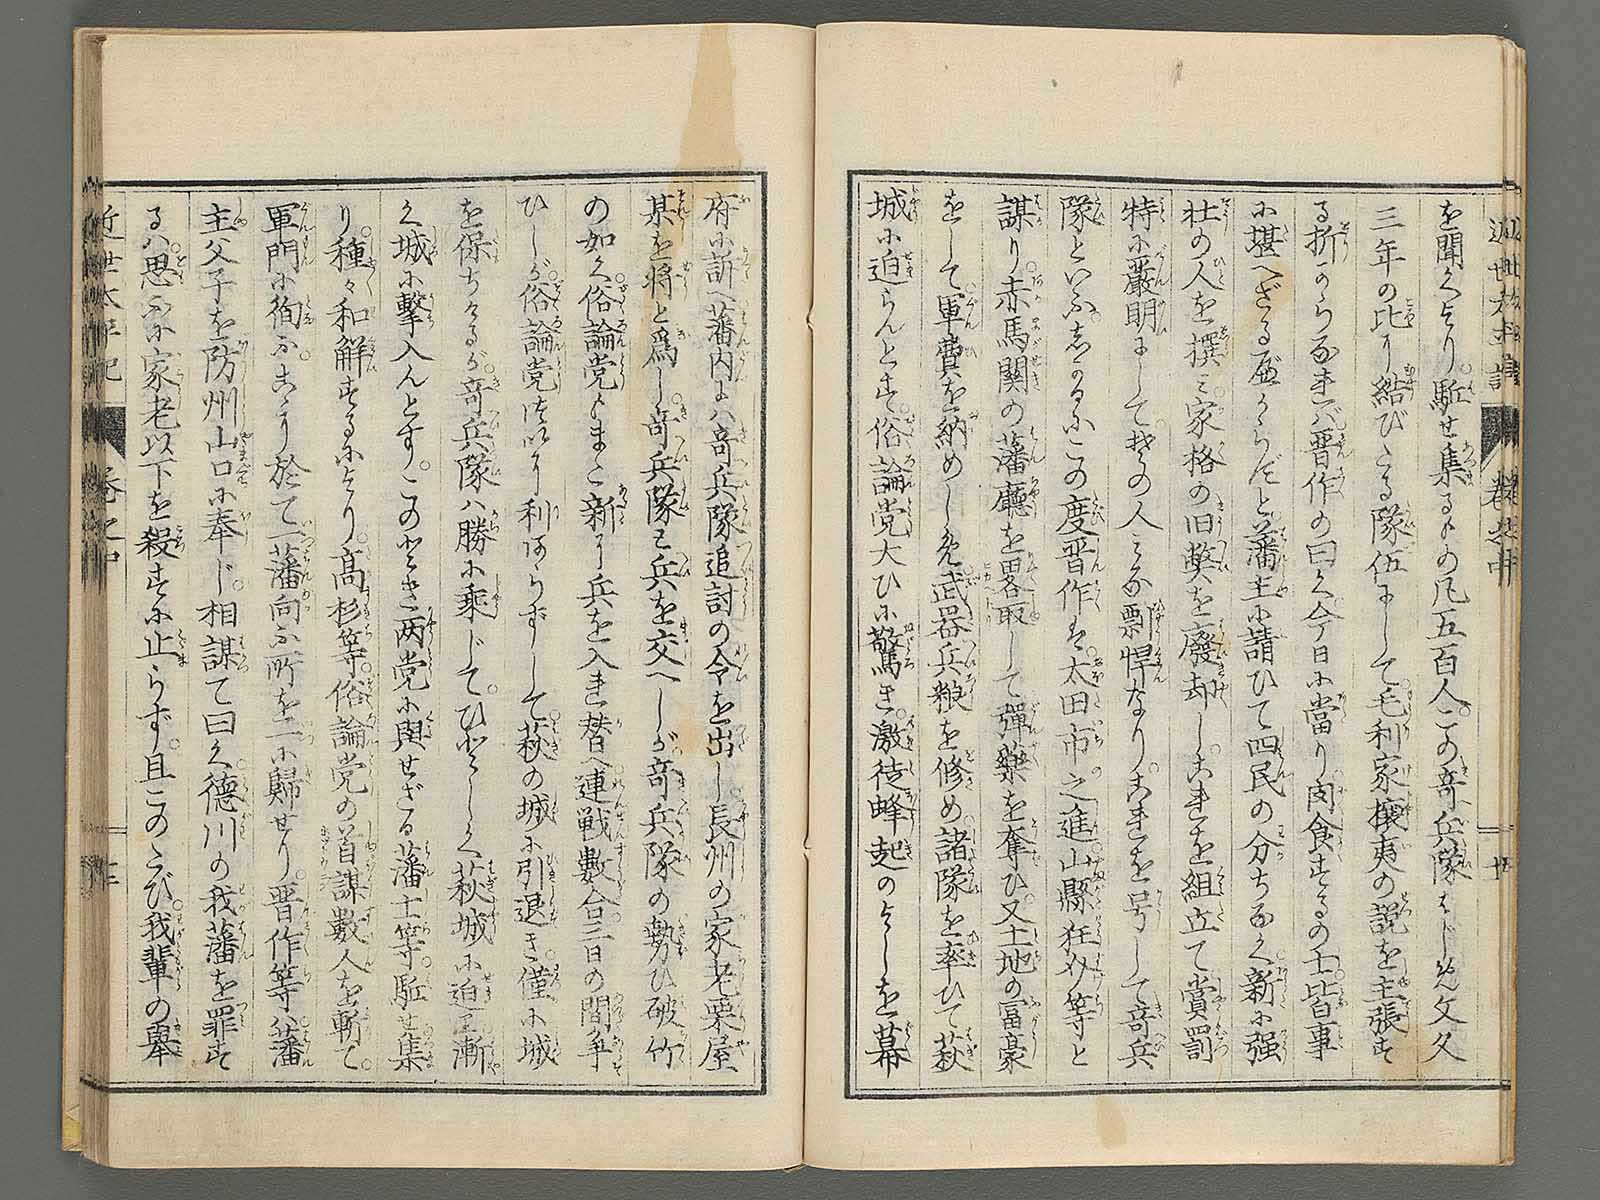 を聞くより駈せ集るもの凡五百人この奇兵隊はじめ文久
三年の比より結びたる隊伍にして毛利家攘夷の説を主張す
る折からなれバ晋作の曰く今日に當り肉食するの士皆事
に堪へざる所からだと藩主に請ひて四民の分ちなく新に强
壮の人を撰ミ家格の旧弊を廢却しこれを組立て賞罰
特に嚴明にしてその人みな剽悍なりこれを号して奇兵
隊といふしかるにこの度晋作ハ太田市之進山縣狂介等と
謀り赤馬関の藩廳を畧取して彈藥を奪ひ又土地の冨豪
をして軍費を納めしめ武器兵粮を修め諸隊を率ひて萩
城に迫らんとす俗論党大ひに驚き激徒蜂起のよしを幕
府に訴へ藩内にハ奇兵隊追討の令を出し長州の家老粟屋
某を将と爲し奇兵隊と兵を交へしが奇兵隊の勢ひ破竹
の如く俗論党もまた新に兵を入れ替へ連戦數合三日の間争
ひしが俗論党つひに利あらずして萩の城に引退き僅に城
を保ちけるが奇兵隊ハ勝に乗じてひとしく萩城に迫り漸
く城に擊入んとすこのとき両党に與せざる藩士等駈せ集
り種々和解するにより高杉等俗論党の首謀數人を斬て
軍門に徇ふこゝに於て一藩向ふ所を一に歸せり晋作等ハ藩
主父子を防州山口に奉じ相謀て曰く德川の我藩を罪す
るハ思ふに家老以下を殺すに止らず且このたび我輩の擧
近世太平記
巻之中